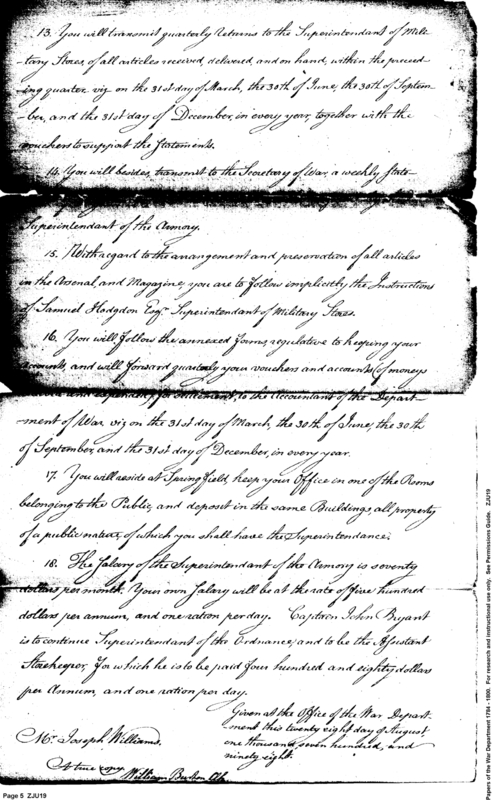 13. You will transmit quarterly Returns to the Superintendant of Mili-
tary Stores, of all articles received, delivered, and on hand, within the preced-
ing quarter viz on the 31st day of March, the 30th of June, the 30th of Septem-
ber, and the 31st day of December, in every year, together with the
vouchers to support the Statements.
14. You will besides, transmit to the Secretary of War, a weekly State-
Superintendant of the Armory.
15. With regard to the arrangement and preservation of all articles
in the Arsenal, and Magazine, you are to follow implicitly the Instructions
of Samuel Hodgdon Esqr. Superintendant of Military Stores.
16. You will follow the annexed forms, regulative to keeping your
accounts, and will forward quarterly your vouchers and accounts (of moneys
and expended) for settlement, to the Accountant of the Depart-
ment of War, viz on the 31st day of March, the 30th of June, the 30th
of September, and the 31st day of December, in every year.
17. You will reside at Springfield, keep your Office in one of the Rooms
belonging to the Public, and deposit in the same Buildings, all property
of a public nature, of which you shall have the Superintendance.
18. The Salary of the Superintendant of the Armory is seventy
dollars per month. Your own Salary will be at the rate of five hundred
dollars per annum, and one ration per day. Captain John Bryant
is to continue Superintendant of the Ordnance, and to be the Assistant
Storekeeper, for which he is to be paid four hundred and eighty dollars
per Annum, and one ration per day.
Given at the Office of the War Depart-
ment this twenty eight day of August
one thousand, seven hundred, and
ninety eight.
Mr. Joseph Williams.
A true copy
William Burton Clk.
Page 5 ZJU19
Papers of the War Department 1784 - 1800. For research and instructional use only. See Permissions Guide. ZJU19